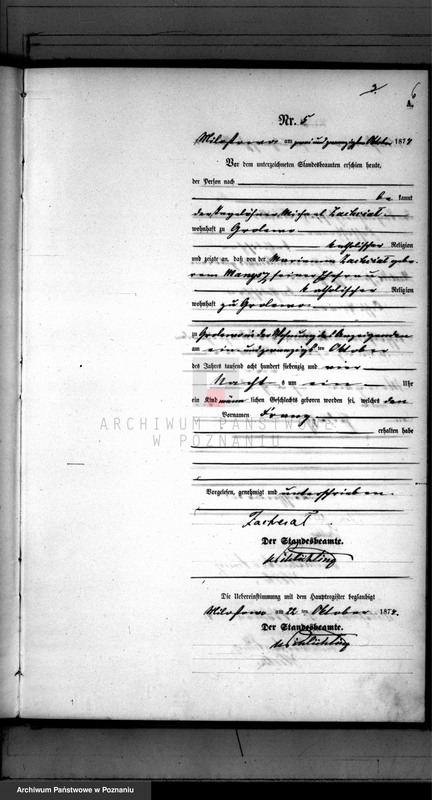 2.
6
A.
Nr. 5
am zwei und zwanzigsten Oktober 1874
Vor dem unterzeichneten Standesbeamten erschien heute,
der Person nach
be kannt
der Tagelöhner Michael
wohnhaft zu
katholischer Religion
und zeigte an, daß von der Marianna
seiner Ehefrau
katholischer Religion
wohnhaft zu
zu in der Wohnung des Anzeigenden
am ein und zwanzigsten Oktober
des Jahres tausend acht hundert siebenzig und vier
Nachts um ein Uhr
ein Kind männ lichen Geschlechts geboren worden sei, welches den
Vornamen Franz
erhalten habe
ARCHIWUM PAŃSTWOWE
W POZNANIU
Vorgelesen, genehmigt und unterschrieben.
Der Standesbeamte.
Die Uebereinstimmung mit dem Hauptregister beglaubigt
am 22 ten Oktober 1874.
Der Standesbeamte.
Archiwum Państwowe w Poznaniu